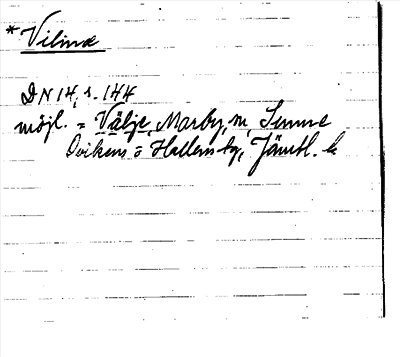 *Vilinæ
DN 14, s. 144
möjl. = Välje, Marby, m, Sunne
Ovikens o Hallens ky, Jämtl. l.